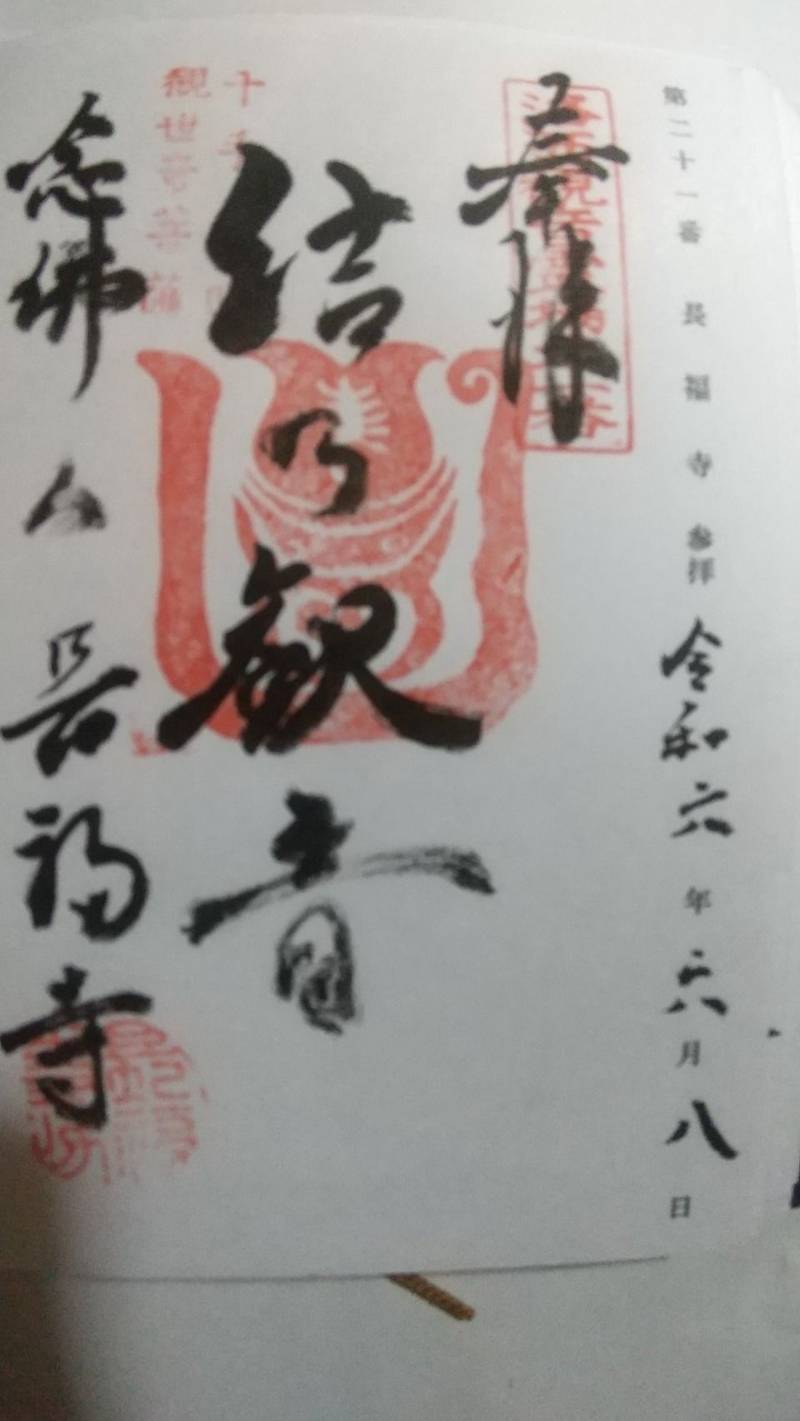 第二十一番 長福寺 参拝 令和六年六月八日
奉拝
結乃観音
十手
觀世音菩薩
念佛人 長福寺